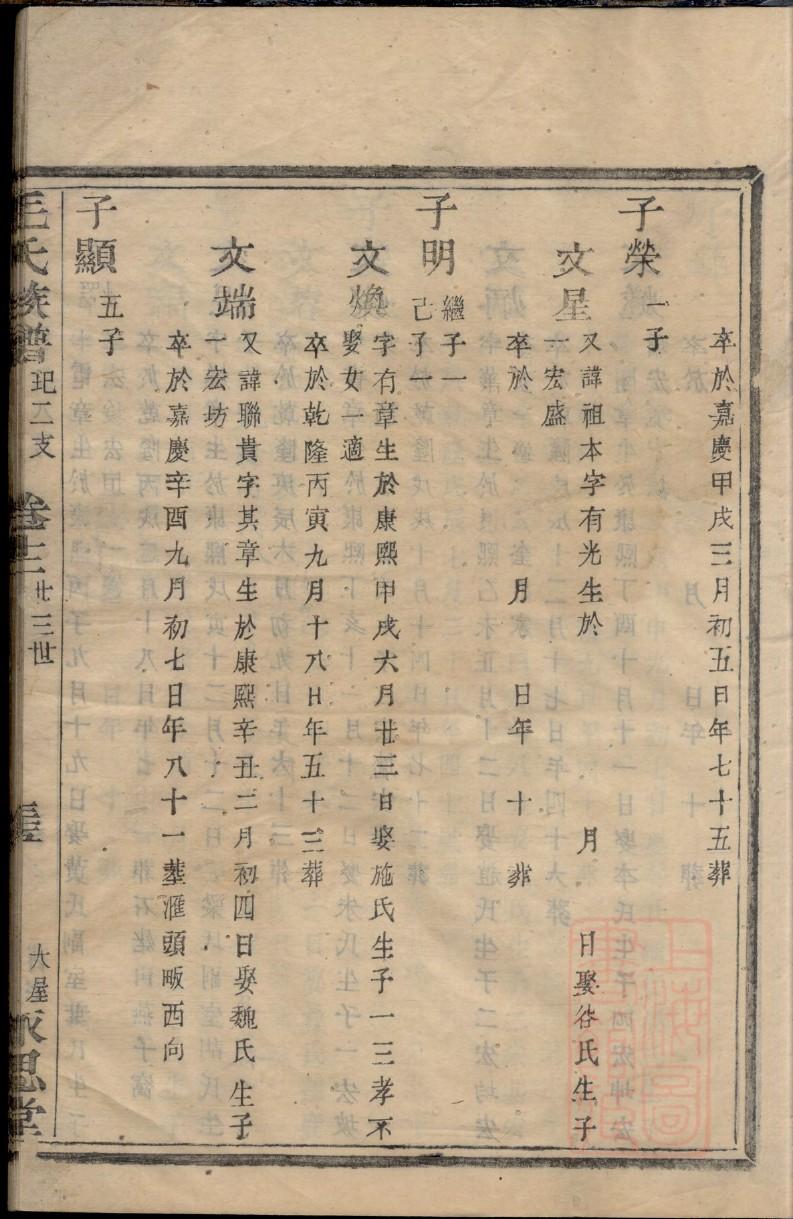 卒於嘉慶甲戌三月初五日年七十五葬
子榮 一子
又諱祖本字有光生於 月 日娶谷氏生子
文星
一宏盛
卒於 月 日年 十 葬
子明 繼子一
己子一
字有章生於康熙甲戌六月廿三日娶施氏生子一三孝不
文煥
娶女一適
卒於乾隆丙寅九月十八日年五十三葬
又諱聯貴字其章生於康熙辛丑二月初四日娶魏氏生子
文端
一宏坊
卒於嘉慶辛酉九月初七日年八十一塟滙頭畈西向
子顯 五子
毛氏族譜 玘二支 卷 廿三世 大屋 永思堂